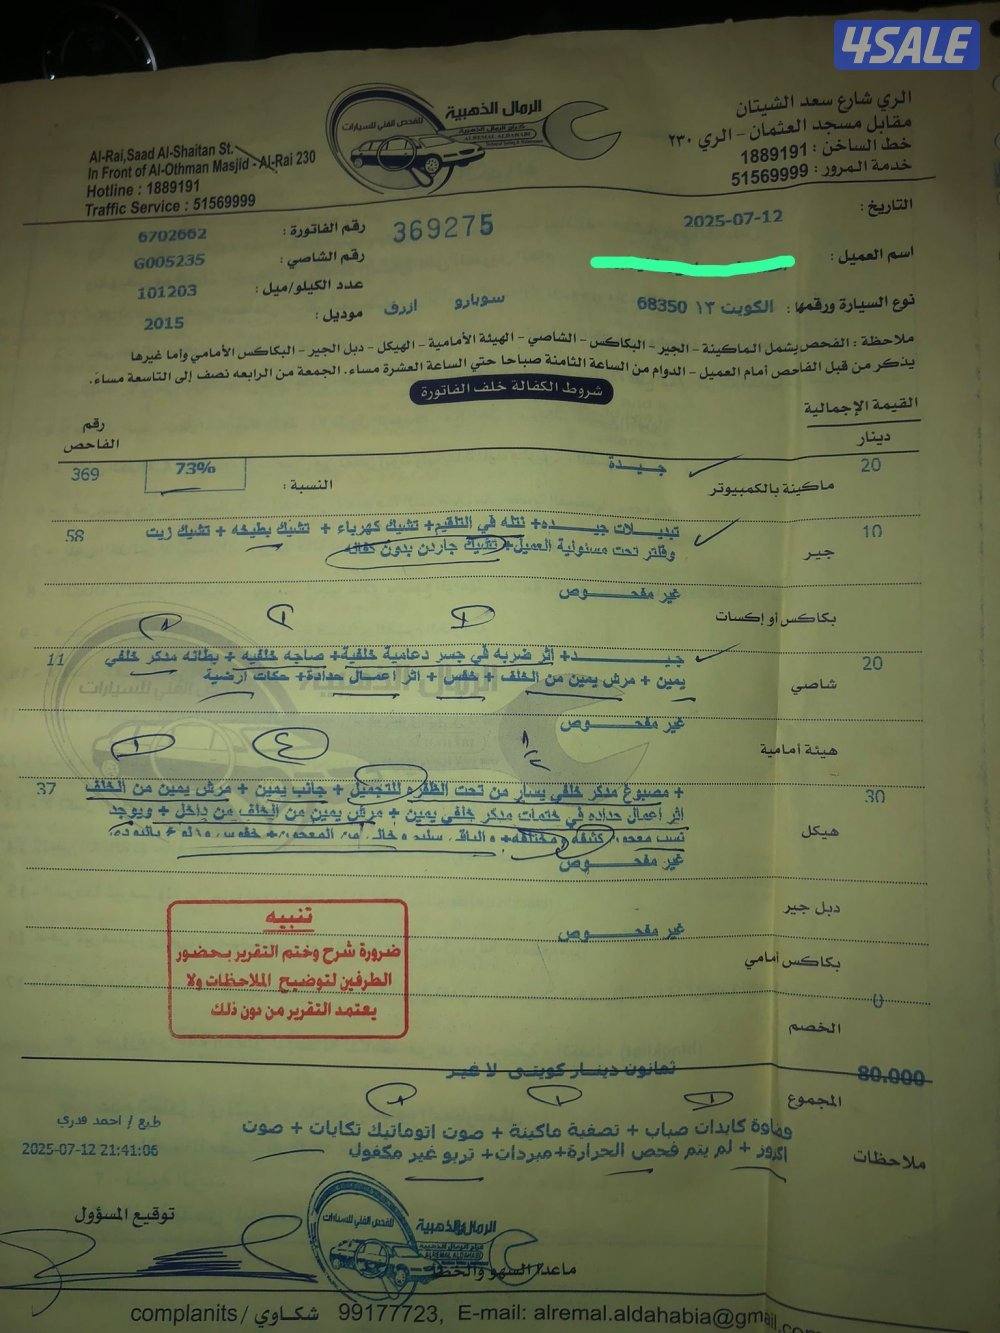 4SALE
الري شارع سعد الشيتان
مقابل مسجد العثمان - الري ٢٣٠
خط الساخن : 1889191
خدمة المرور : 51569999
الرمال الذهبية
للفحص الفني للسيارات
كراج الرمال الذهبية
ALREMAL ALDAHABI
Al-Rai,Saad Al-Shaitan St.
In Front of Al-Othman Masjid - Al-Rai 230
Hotline : 1889191
Traffic Service : 51569999
التاريخ : 2025-07-12
369275
رقم الفاتورة : 6702662
اسم العميل :
رقم الشاصي : G005235
عدد الكيلو/ميل : 101203
نوع السيارة ورقمها : الكويت ١٣ 68350 سوبارو ازرق
موديل : 2015
ملاحظة : الفحص يشمل الماكينة - الجير - البكاكس - الشاصي - الهيئة الأمامية - الهيكل - دبل الجير - البكاكس الأمامي وأما غيرها
يذكر من قبل الفاحص أمام العميل - الدوام من الساعة الثامنة صباحا حتي الساعة العشرة مساء. الجمعة من الرابعه نصف إلى التاسعة مساءً.
شروط الكفالة خلف الفاتورة
القيمة الإجمالية
دينار
رقم الفاحص
20 ماكينة بالكمبيوتر جيدة النسبة : 73% 369
10 جير تبديلات جيده+ نتله في التلقيم+ تشيك كهرباء + تشيك بطيخه + تشيك زيت 58
وفلتر تحت مسئولية العميل+ تشيك جاردن بدون كفاله
بكاكس أو إكسات غير مفحوص
20 شاصي جيد+ اثر ضربه في جسر دعامية خلفية+ صاجه خلفيه + بطانه مدكر خلفي 11
يمين + مرش يمين من الخلف + خفس + اثر اعمال حدادة+ حكات ارضية
هيئة أمامية غير مفحوص
30 هيكل + مصبوغ مدكر خلفي يسار من تحت الظفره للتجميل + جانب يمين + مرش يمين من الخلف 37
اثر أعمال حداده في ختمات مدكر خلفي يمين + مرش يمين من الخلف من داخل + ويوجد
نسب معجون كثيفه ومختلفه+ والباقي سليم وخالي من المعجون+ خفوس
دبل جير غير مفحوص
بكاكس أمامي غير مفحوص
0 الخصم
تنبيه
ضرورة شرح وختم التقرير بحضور
الطرفين لتوضيح الملاحظات ولا
يعتمد التقرير من دون ذلك
المجموع 80.000 ثمانون دينار كويتي لا غير
ملاحظات وفاوة كابدات صباب + تصفية ماكينة + صوت اتوماتيك تكايات + صوت
اكزوز + لم يتم فحص الحرارة+مبردات+ تربو غير مكفول
طبع / احمد قدري
2025-07-12 21:41:06
توقيع المسؤول
الرمال الذهبية
للفحص الفني للسيارات
ALREMAL ALDAHABI
ماعدا السهو والخطأ
complanits / شكاوي 99177723, E-mail: alremal.aldahabia@gmail.com